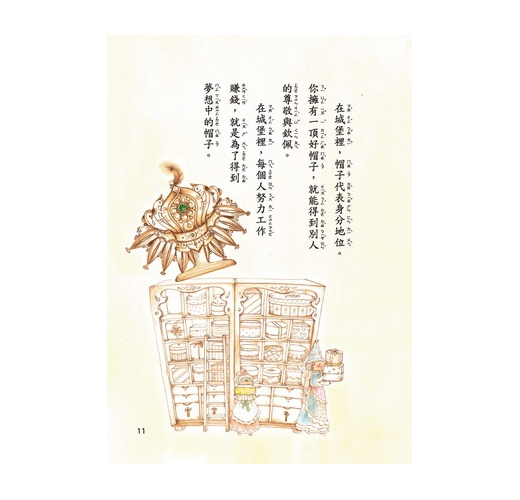 在城堡裡，帽子代表身分地位。
你擁有一頂好帽子，就能得到別人
的尊敬與欽佩。
在城堡裡，每個人努力工作
賺錢，就是為了得到
夢想中的帽子。
11